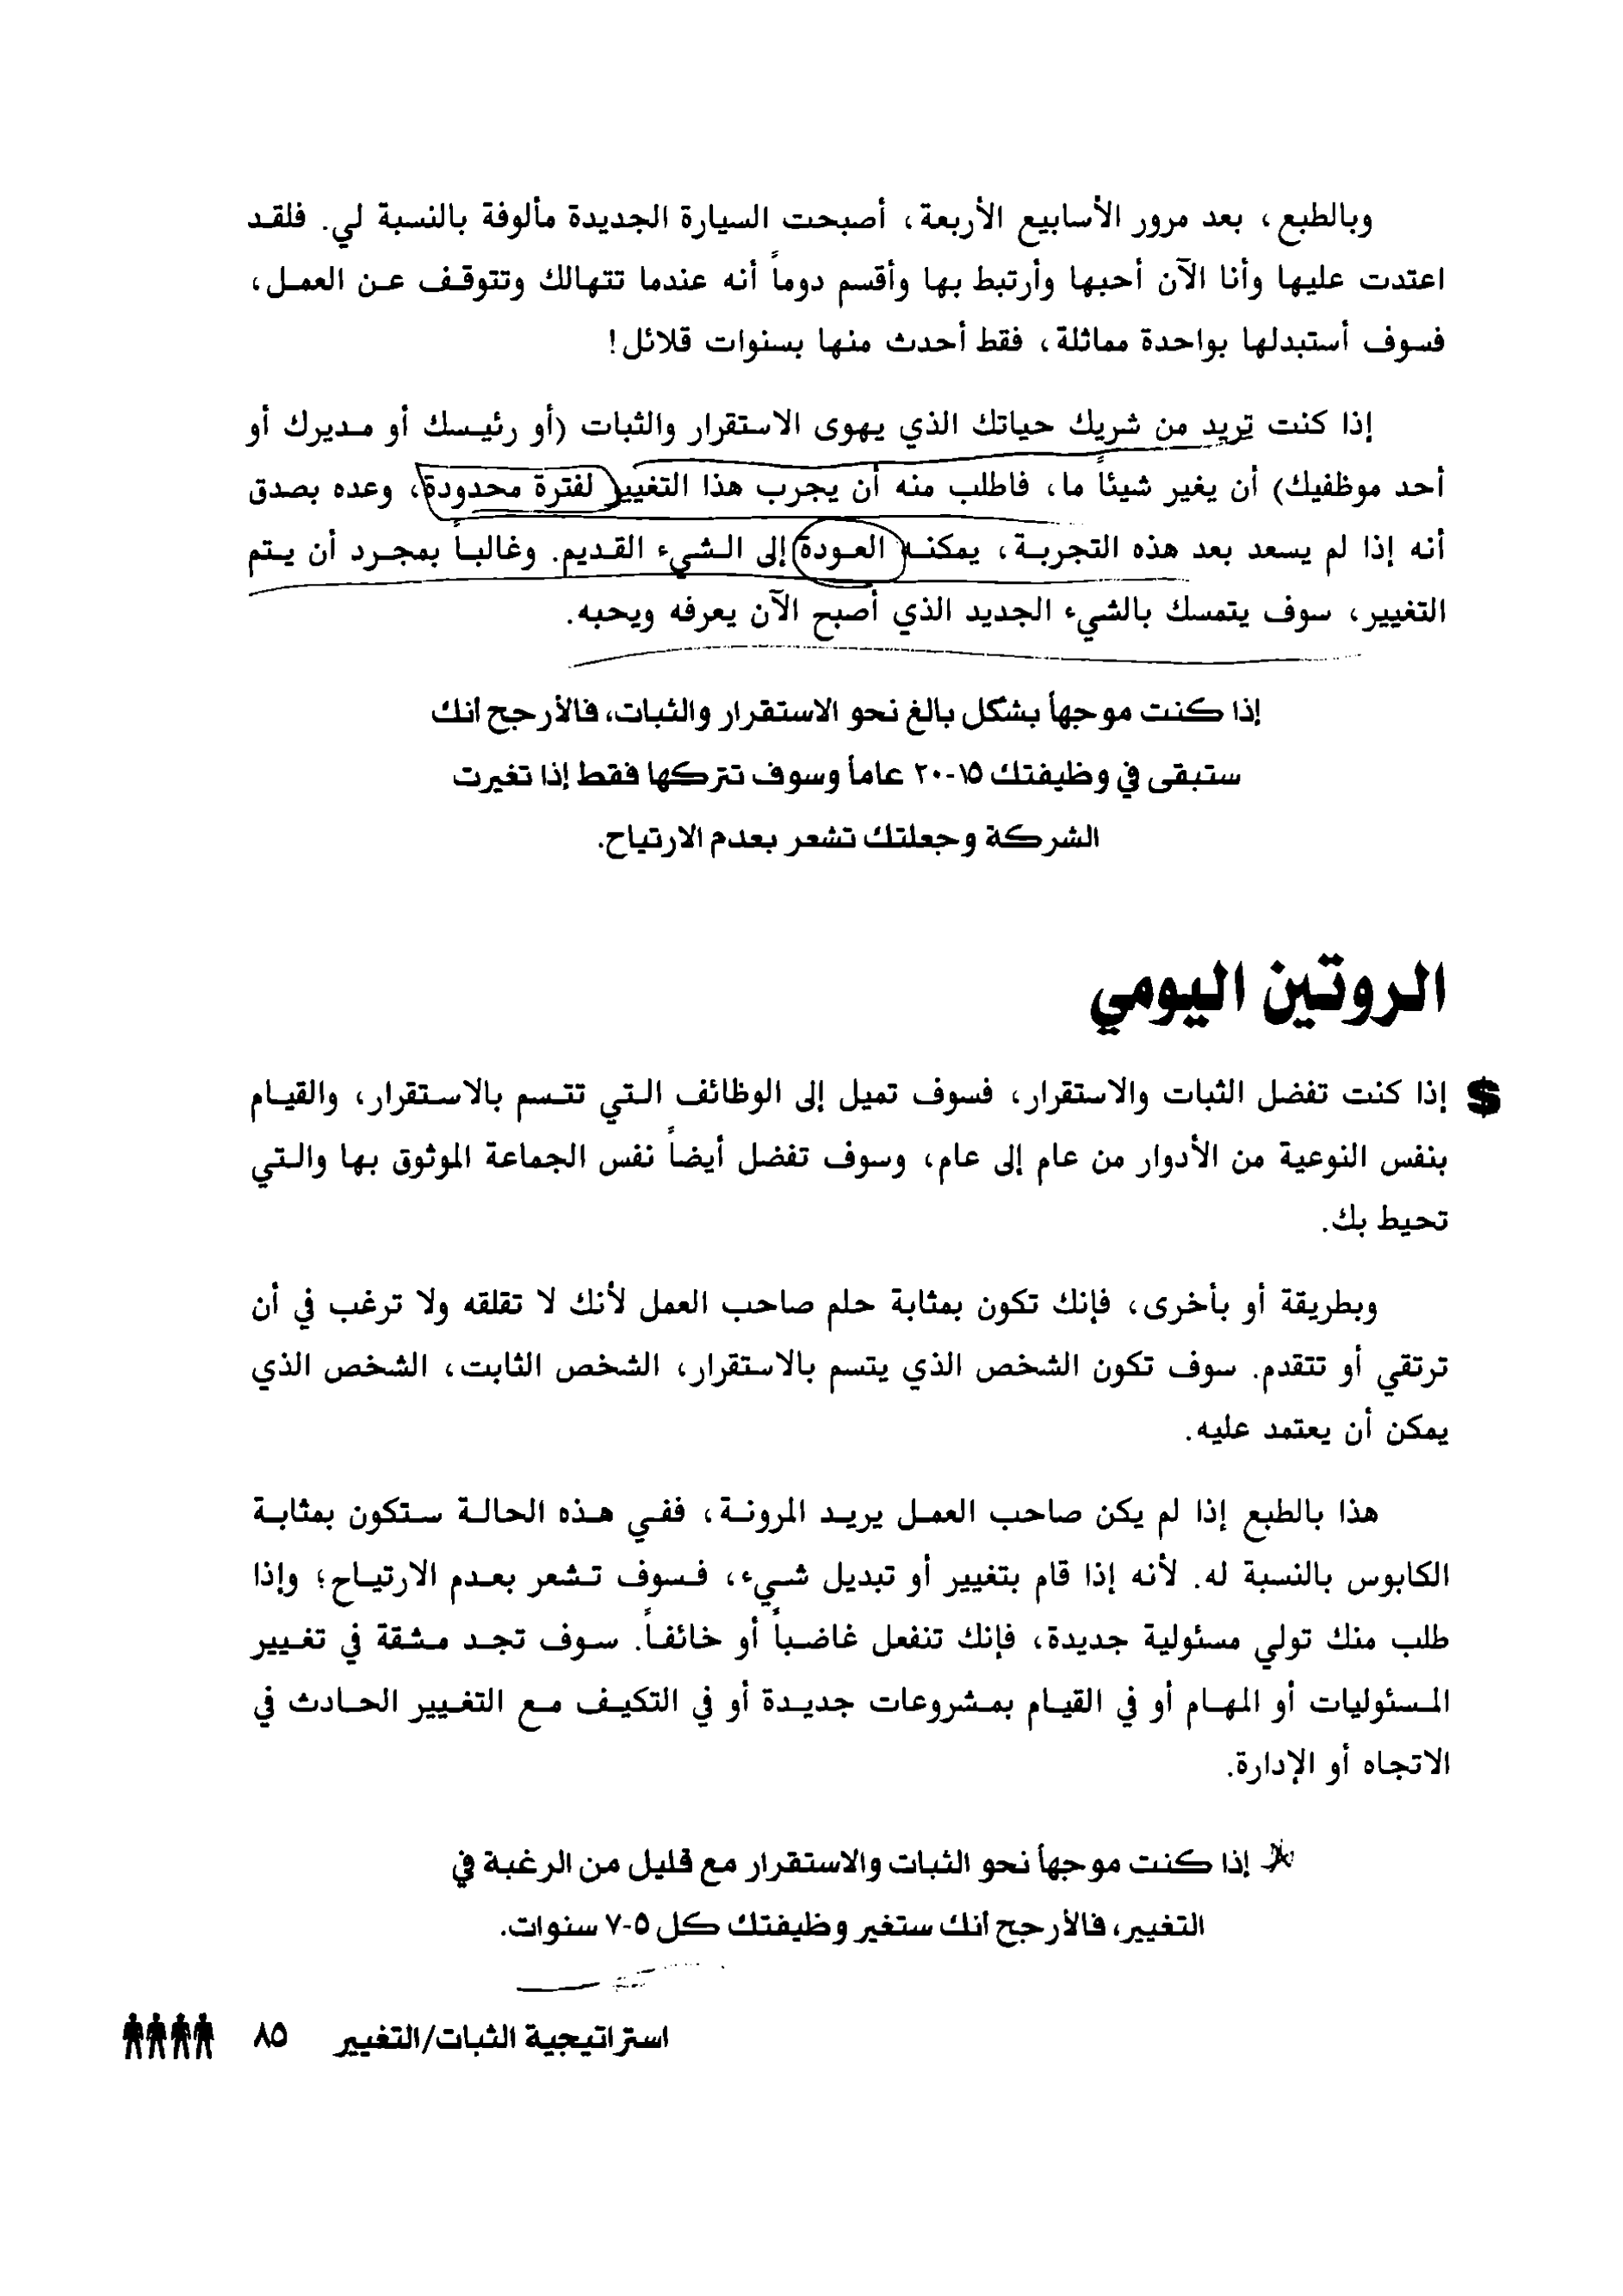 وبالطبع، بعد مرور الأسابيع الأربعة، أصبحت السيارة الجديدة مألوفة بالنسبة لي. فلقد
اعتدت عليها وأنا الآن أحبها وأرتبط بها وأقسم دوماً أنه عندما تتهالك وتتوقف عن العمل،
فسوف أستبدلها بواحدة مماثلة، فقط أحدث منها بسنوات قلائل!
إذا كنت تريد من شريك حياتك الذي يهوى الاستقرار والثبات (أو رئيسك أو مديرك أو
أحد موظفيك) أن يغير شيئاً ما، فاطلب منه أن يجرب هذا التغيير لفترة محدودة، وعده بصدق
أنه إذا لم يسعد بعد هذه التجربة، يمكنه العودة إلى الشيء القديم. وغالباً بمجرد أن يتم
التغيير، سوف يتمسك بالشيء الجديد الذي أصبح الآن يعرفه ويحبه.
إذا كنت موجهاً بشكل بالغ نحو الاستقرار والثبات، فالأرجح أنك
ستبقى في وظيفتك ١٥-٢٠ عاماً وسوف تتركها فقط إذا تغيرت
الشركة وجعلتك تشعر بعدم الارتياح.
الروتين اليومي
$ إذا كنت تفضل الثبات والاستقرار، فسوف تميل إلى الوظائف التي تتسم بالاستقرار، والقيام
بنفس النوعية من الأدوار من عام إلى عام، وسوف تفضل أيضاً نفس الجماعة الموثوق بها والتي
تحيط بك.
وبطريقة أو بأخرى، فإنك تكون بمثابة حلم صاحب العمل لأنك لا تقلقه ولا ترغب في أن
ترتقي أو تتقدم. سوف تكون الشخص الذي يتسم بالاستقرار، الشخص الثابت، الشخص الذي
يمكن أن يعتمد عليه.
هذا بالطبع إذا لم يكن صاحب العمل يريد المرونة، ففي هذه الحالة ستكون بمثابة
الكابوس بالنسبة له. لأنه إذا قام بتغيير أو تبديل شيء، فسوف تشعر بعدم الارتياح؛ وإذا
طلب منك تولي مسئولية جديدة، فإنك تنفعل غاضباً أو خائفاً. سوف تجد مشقة في تغيير
المسئوليات أو المهام أو في القيام بمشروعات جديدة أو في التكيف مع التغيير الحادث في
الاتجاه أو الإدارة.
إذا كنت موجهاً نحو الثبات والاستقرار مع قليل من الرغبة في
التغيير، فالأرجح أنك ستغير وظيفتك كل ٥-٧ سنوات.
استراتيجية الثبات/التغيير ٨٥